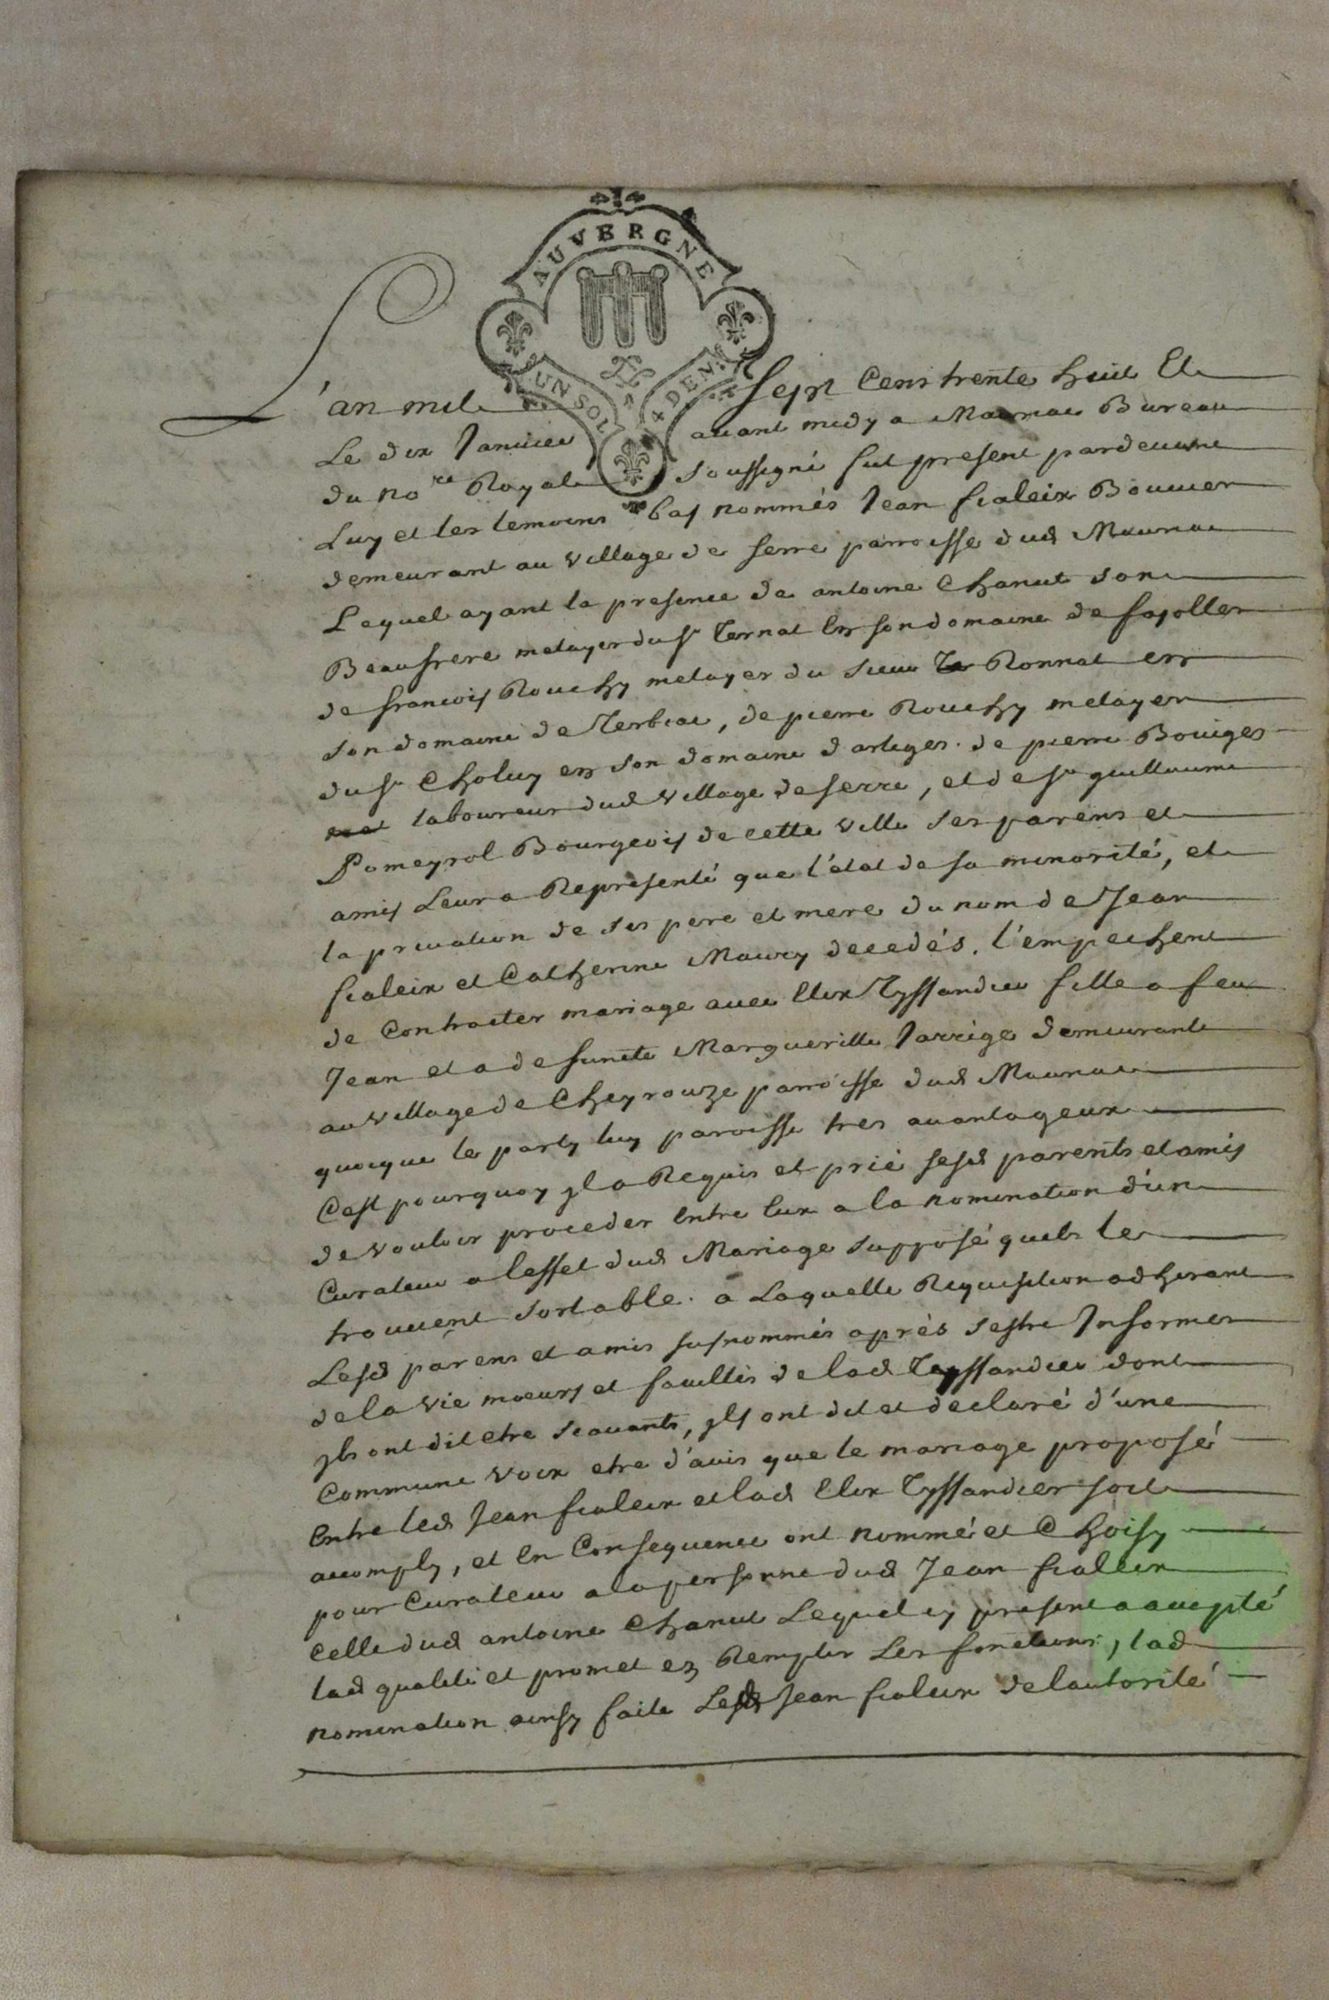 AUVERGNE
UN SOL 4 DEN.
L'an mil Sept Cens trente huit Et
Le dix Janvier avant midy a Mauriac Bureau
du no.re Royal soussigné fut present pardevant
Luy et les temoins bas nommés Jean fialeix Bouvier
demeurant au village de serre parroisse dud Mauriac
Lequel ayant la presence de antoine Chanut son
Beaufrere metayer du sr Ternat En son domaine de fajolles
de francois Rouchy metayer du sieur Ronnat en
son domaine de Verbiac, de pierre Rouchy metayer
du sr Cholvy en son domaine d'artiges. de pierre Bouiges
laboureur dud village de serre, et de sr guillaume
Pomeyrol Bourgeois de cette ville ses parens et
amis Leur a Representé que l'état de sa minorité, et
la privation de ses pere et mere du nom de Jean
fialeix et Catherine Maury decedés. l'empechent
de Contracter mariage avec Elix Tyssandier fille a feu
Jean et a defuncte Margueritte Jarrige demeurante
au village de Cheyrouze parroisse dud Mauriac
quoique le party luy paroisse tres avantageux
C'est pourquoy yl a Requis et prié sesd parents et amis
de vouloir proceder Entre Eux a la nomination d'un
Curateur a leffet dud Mariage supposé quils le
trouvent sortable. a Laquelle Requisition adherant
Lesd parens et amis susnommés après sestre Informes
de la vie moeurs et facultés de lad Teyssandier dont
yls ont dit etre scavants, yls ont dit et declaré d'une
Commune voix etre d'avis que le mariage proposé
Entre led Jean fialeix et lad Elix Tyssandier soit
accomply, et En Consequence ont nommé et Choisy
pour Curateur a la personne dud Jean fialeix
Celle dud antoine Chanut Lequel cy present a accepté
lad qualité et promet en Remplir Les fonctions, lad
nomination ainsy faite Led Jean fialeix de l'autorité